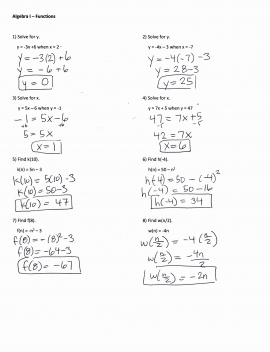 Algebra I – Functions
1) Solve for y.
y = -3x +6 when x = 2
y = -3(2) + 6
y = -6 + 6
y = 0
2) Solve for y.
y = -4x – 3 when x = -7
y = -4(-7) - 3
y = 28 - 3
y = 25
3) Solve for x.
y = 5x – 6 when y = -1
-1 = 5x - 6
+6 +6
5 = 5x
x = 1
4) Solve for x.
y = 7x + 5 when y = 47
47 = 7x + 5
-5 -5
42 = 7x
x = 6
5) Find k(10).
k(n) = 5n – 3
k(10) = 5(10) - 3
k(10) = 50 - 3
k(10) = 47
6) Find h(-4).
h(n) = 50 – n²
h(-4) = 50 - (-4)²
h(-4) = 50 - 16
h(-4) = 34
7) Find f(8).
f(8) = -(8)² - 3
f(8) = -64 - 3
f(8) = -67
8) Find w(n/2).
w(n) = -4n
w(n/2) = -4(n/2)
w(n/2) = -4n/2
w(n/2) = -2n